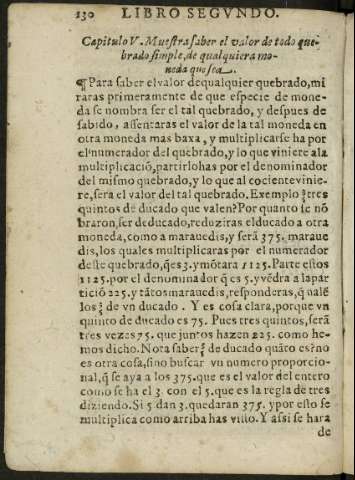 130 LIBRO SEGVNDO.
Capitulo V. Muestra saber el valor de todo que-
brado simple, de qualquiera mo-
neda que sea.
¶Para saber el valor dequalquier quebrado, mi
raras primeramente de que especie de mone-
da se nombra ser el tal quebrado, y despues de
sabido, assentaras el valor de la tal moneda en
otra moneda mas baxa, y multiplicarse ha por
el numerador del quebrado, y lo que viniere ala
multiplicació, partirlohas por el denominador
del mismo quebrado, y lo que al cociente vinie-
re, sera el valor del tal quebrado. Exemplo ⅗ tres
quintos de ducado que valen? Por quanto se nō
braron, ser de ducado, reduziras el ducado a otra
moneda, como a marauedis, y será 375. maraue
dis, los quales multiplicaras por el numerador
deste quebrado, q̃es 3. y mōtara 1125. Parte estos
1125. por el denominador q̃ es 5. y vēdra a la par
tició 225. y tātos marauedis, responderas, q̃ valē
los ⅗ de vn ducado. Y es cosa clara, porque vn
quinto de ducado es 75. Pues tres quintos, será
tres vezes 75. que juntos hazen 225. como he-
mos dicho. Nota saber ⅗ de ducado quāto es? no
es otra cosa, sino buscar vn numero proporcio-
nal, q̃ se aya a los 375. que es el valor del entero
como se ha el 3. con el 5. que es la regla de tres
diziendo. Si 5 dan 3. quedaran 375. y por esto se
multiplica como arriba has visto. Y assi se hara
de